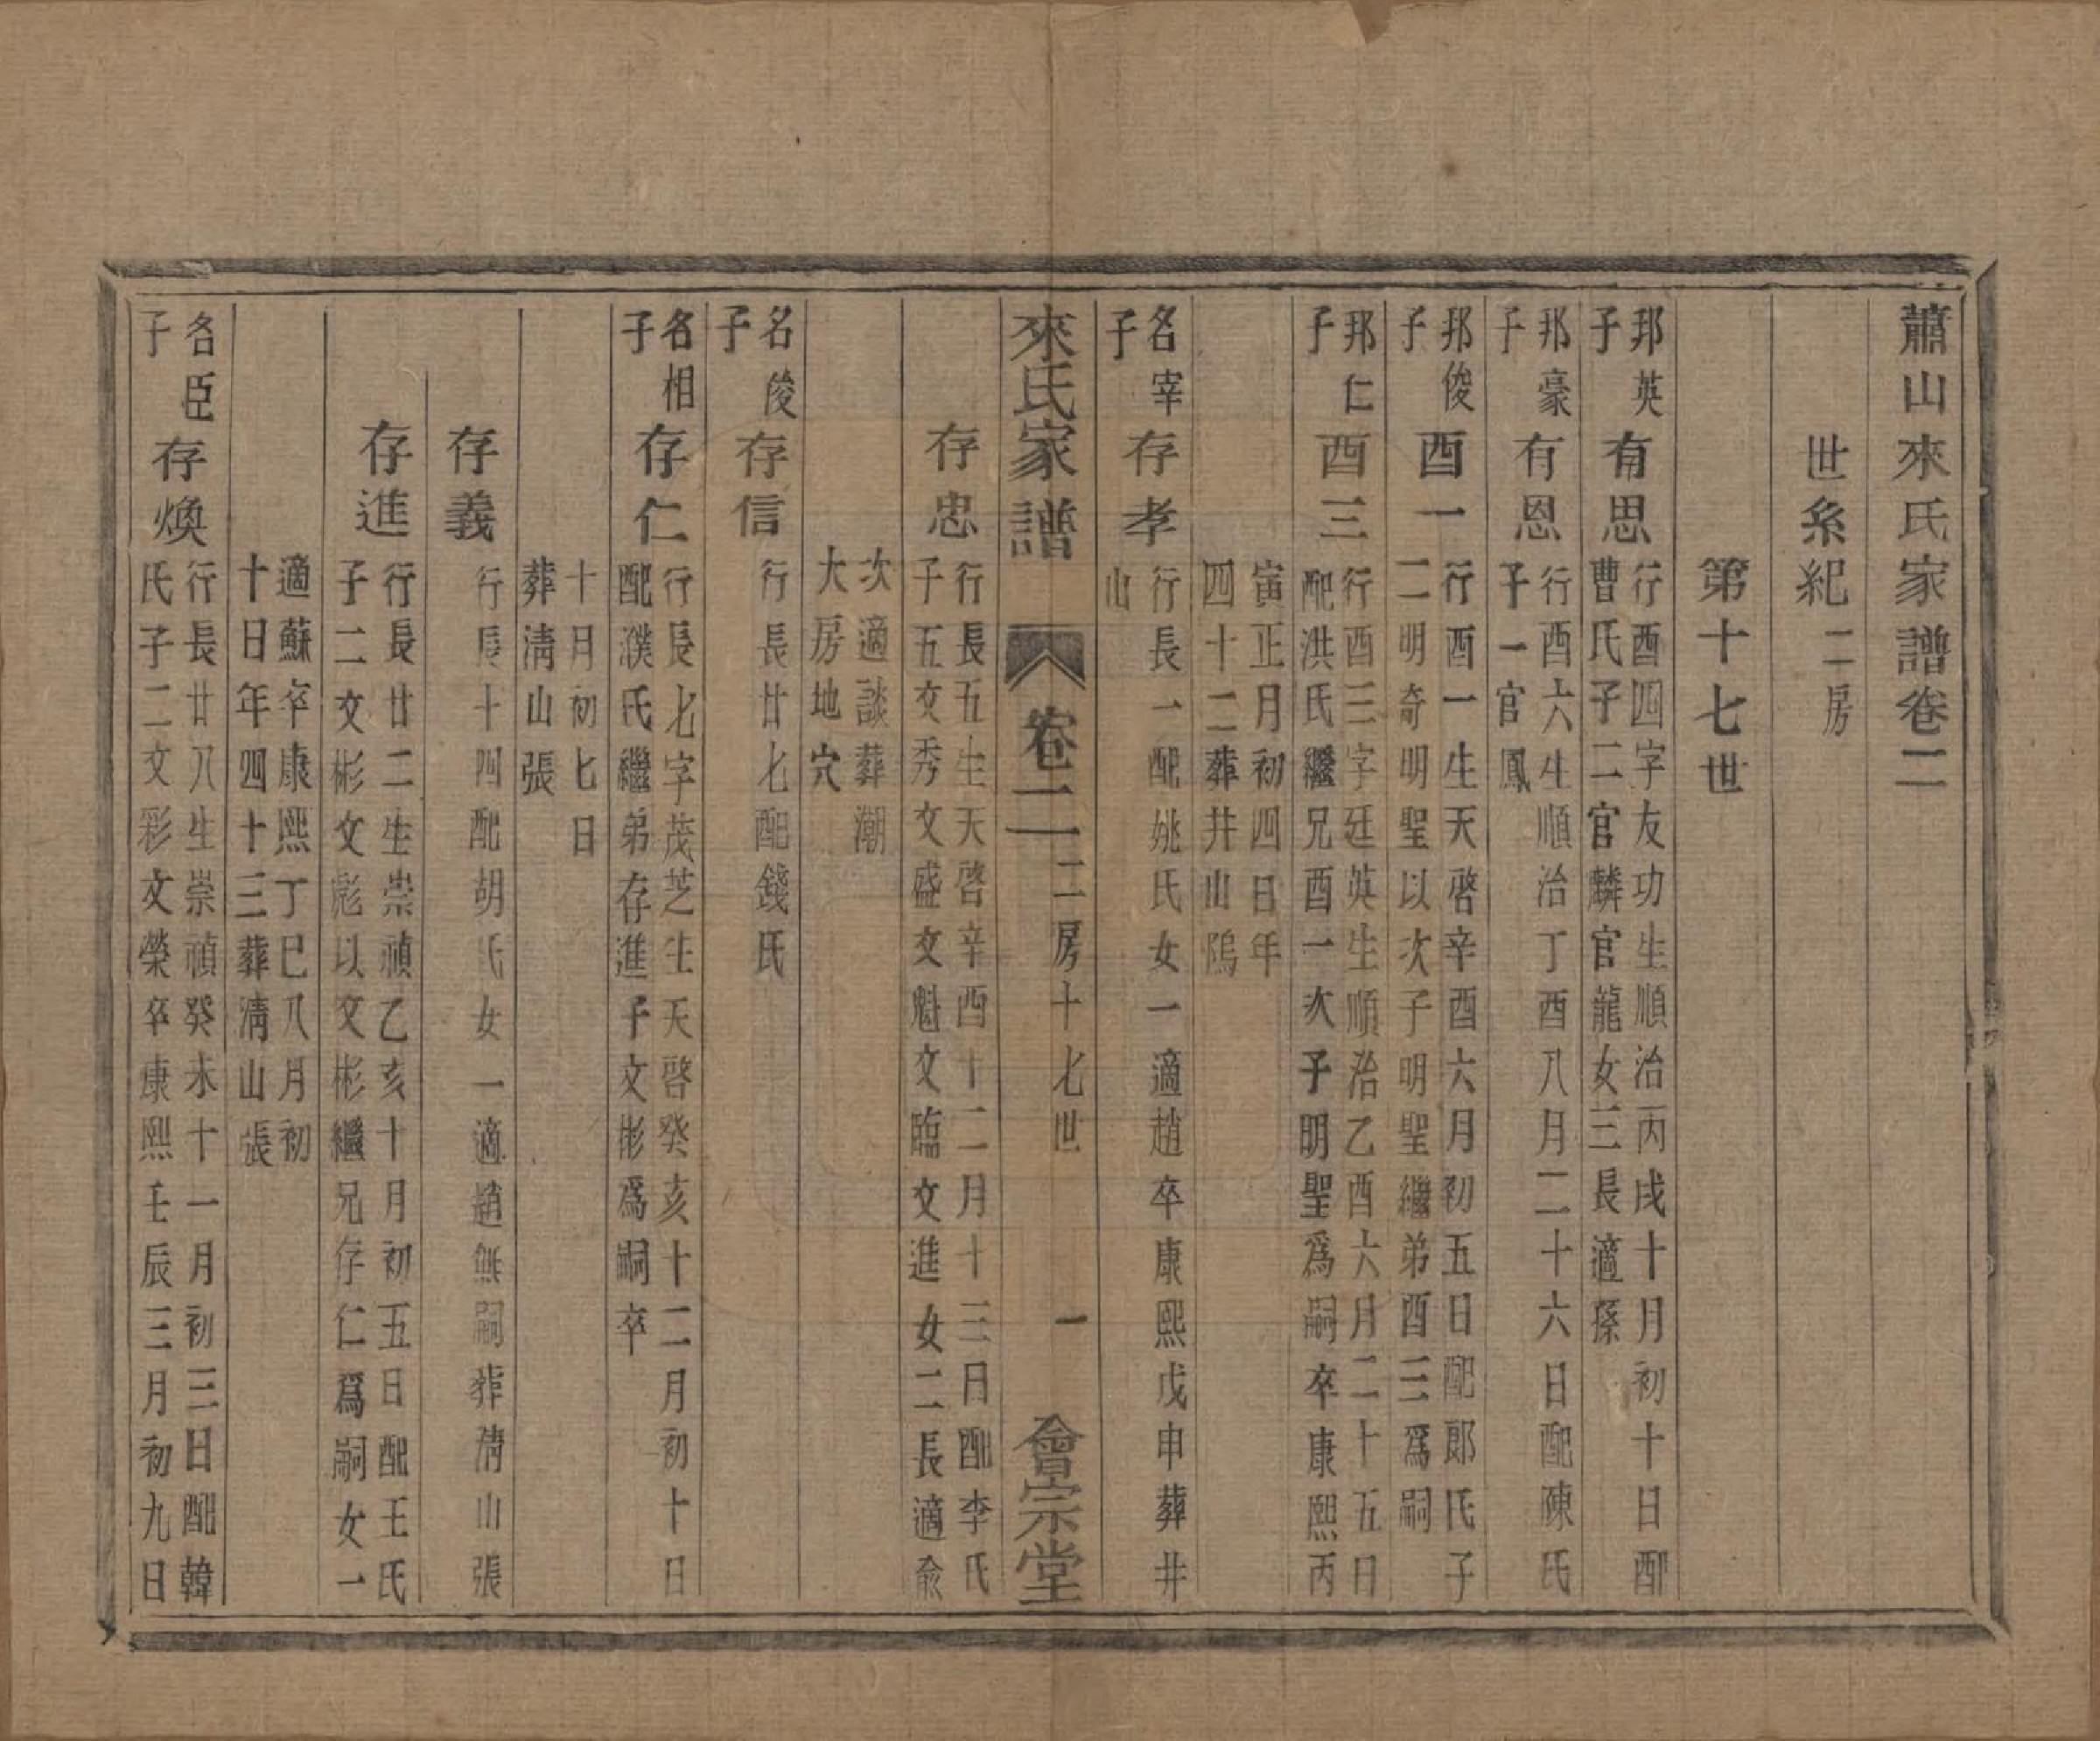 蕭山來氏家譜卷二
世系紀二房
第十七世
邦英子
有思
行酉四字友功生順治丙戌十月初十日配
曹氏子二官麟官龍女三長適孫
邦豪子
有恩
行酉六生順治丁酉八月二十六日配陳氏
子一官鳳
邦俊子
酉一
行酉一生天啓辛酉六月初五日配郎氏子
二明奇明聖以次子明聖繼弟酉三爲嗣
邦仁子
酉三
行酉三字廷英生順治乙酉六月二十五日
配洪氏繼兄酉一次子明聖爲嗣卒康熙丙
寅正月初四日年
四十二葬井山隖
名宰子
存孝
行長一配姚氏女一適趙卒康熙戊申葬井
山
來氏家譜
卷二
二房十七世
一
會宗堂
存忠
行長五生天啓辛酉十二月十三日配李氏
子五文秀文盛文魁文臨文進女二長適俞
次適談葬潮
大房地穴
名俊子
存信
行長廿七配錢氏
名相子
存仁
行長七字茂芝生天啓癸亥十二月初十日
配濮氏繼弟存進子文彬爲嗣卒
十月初七日
葬淸山張
存義
行長十四配胡氏女一適趙無嗣葬淸山張
存進
行長廿二生崇禎乙亥十月初五日配王氏
子二文彬文彪以文彬繼兄存仁爲嗣女一
適蘇卒康熙丁巳八月初
十日年四十三葬淸山張
名臣子
存煥
行長廿八生崇禎癸未十一月初三日配韓
氏子二文彩文榮卒康熙壬辰三月初九日